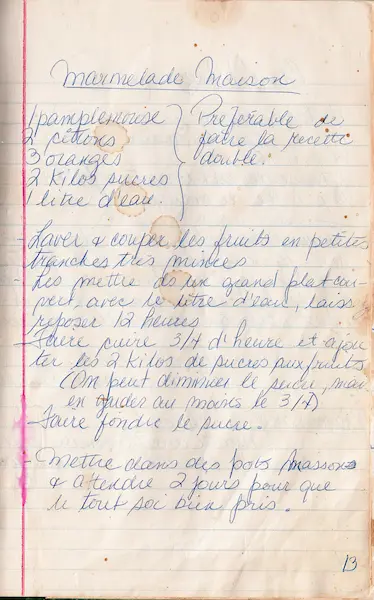 Marmelade Maison
1 pamplemouse
2 citrons
3 oranges
2 Kilos sucres
1 litre d'eau.
Préférable de
faire la recette
double.
- Laver & couper les fruits en petites
tranches très minces
- Les mettre ds un grand plat cou-
vert avec le litre d'eau, laiss
reposer 12 heures
- Faire cuire 3/4 d'heure et ajou
ter les 2 kilos de sucres aux fruits
(On peut diminuer le sucre, mai
en garder au moins le 3/4)
- Faire fondre le sucre.
- Mettre dans des pots Massons
& attendre 2 jours pour que
le tout soi bien pris.
13